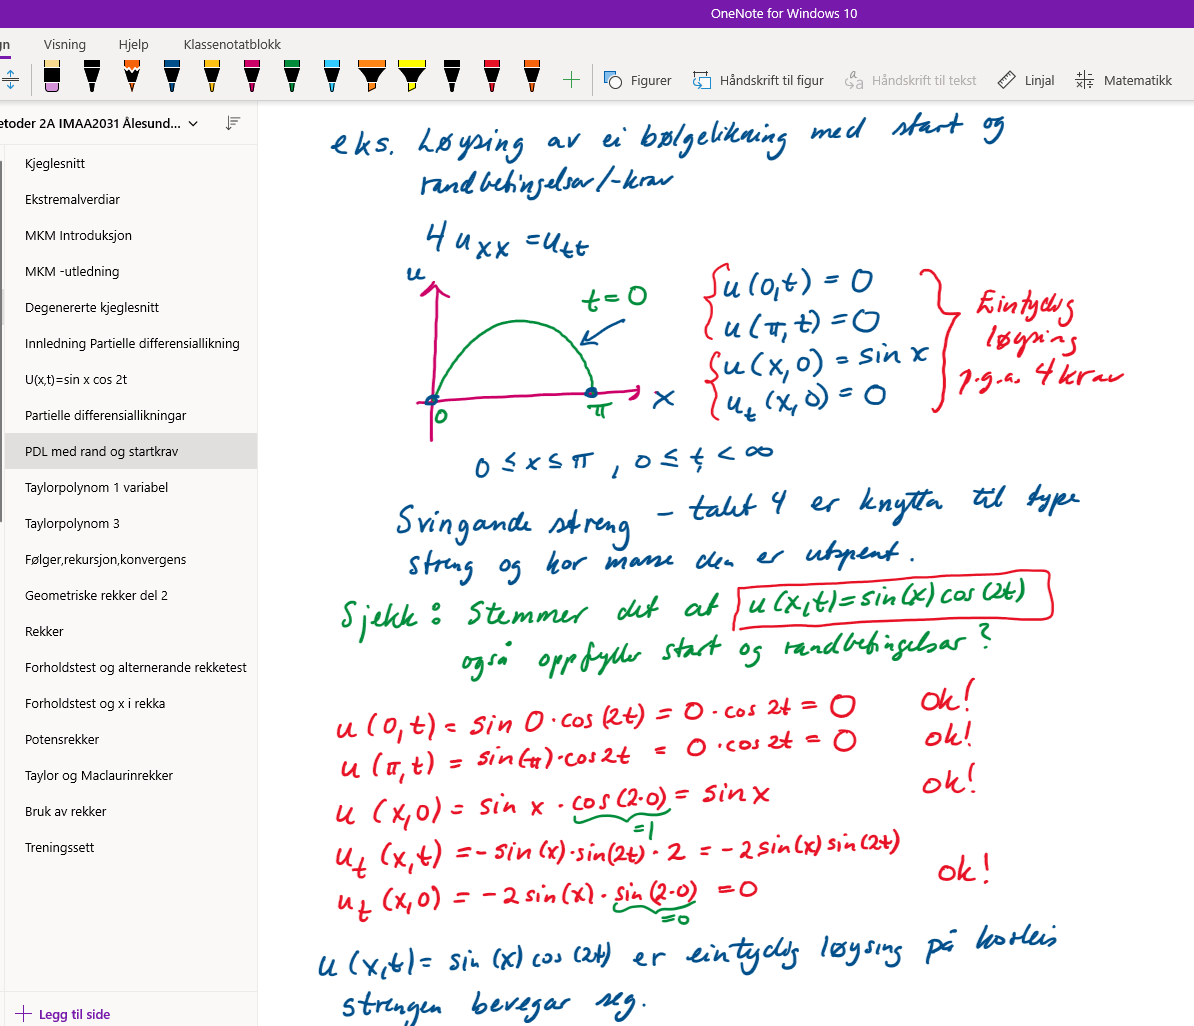 OneNote for Windows 10
gn Visning Hjelp Klassenotatblokk
Figurer Håndskrift til figur Håndskrift til tekst Linjal Matematikk
etoder 2A IMAA2031 Ålesund...
Kjeglesnitt
Ekstremalverdiar
MKM Introduksjon
MKM -utledning
Degenererte kjeglesnitt
Innledning Partielle differensiallikning
U(x,t)=sin x cos 2t
Partielle differensiallikningar
PDL med rand og startkrav
Taylorpolynom 1 variabel
Taylorpolynom 3
Følger,rekursjon,konvergens
Geometriske rekker del 2
Rekker
Forholdstest og alternerande rekketest
Forholdstest og x i rekka
Potensrekker
Taylor og Maclaurinrekker
Bruk av rekker
Treningssett
Legg til side
eks. Løysing av ei bølgelikning med start og
randbetingelsar/-krav
4 u_xx = u_tt
u
t = 0
0 π x
u(0,t) = 0
u(π,t) = 0
u(x,0) = sin x
u_t(x,0) = 0
Eintydig
løysing
p.g.a. 4 krav
0 ≤ x ≤ π , 0 ≤ t < ∞
Svingande streng – talet 4 er knytta til type
streng og kor masse den er utspent.
Sjekk: Stemmer det at u(x,t)=sin(x)cos(2t)
også oppfyller start og randbetingelsar?
u(0,t) = sin 0 · cos(2t) = 0 · cos 2t = 0 ok!
u(π,t) = sin(π) · cos 2t = 0 · cos 2t = 0 ok!
u(x,0) = sin x · cos(2·0) = sin x ok!
=1
u_t(x,t) = -sin(x)·sin(2t)·2 = -2 sin(x) sin(2t)
u_t(x,0) = -2 sin(x) · sin(2·0) = 0 ok!
=0
u(x,t) = sin(x) cos(2t) er eintydig løysing på korleis
strengen bevegar seg.